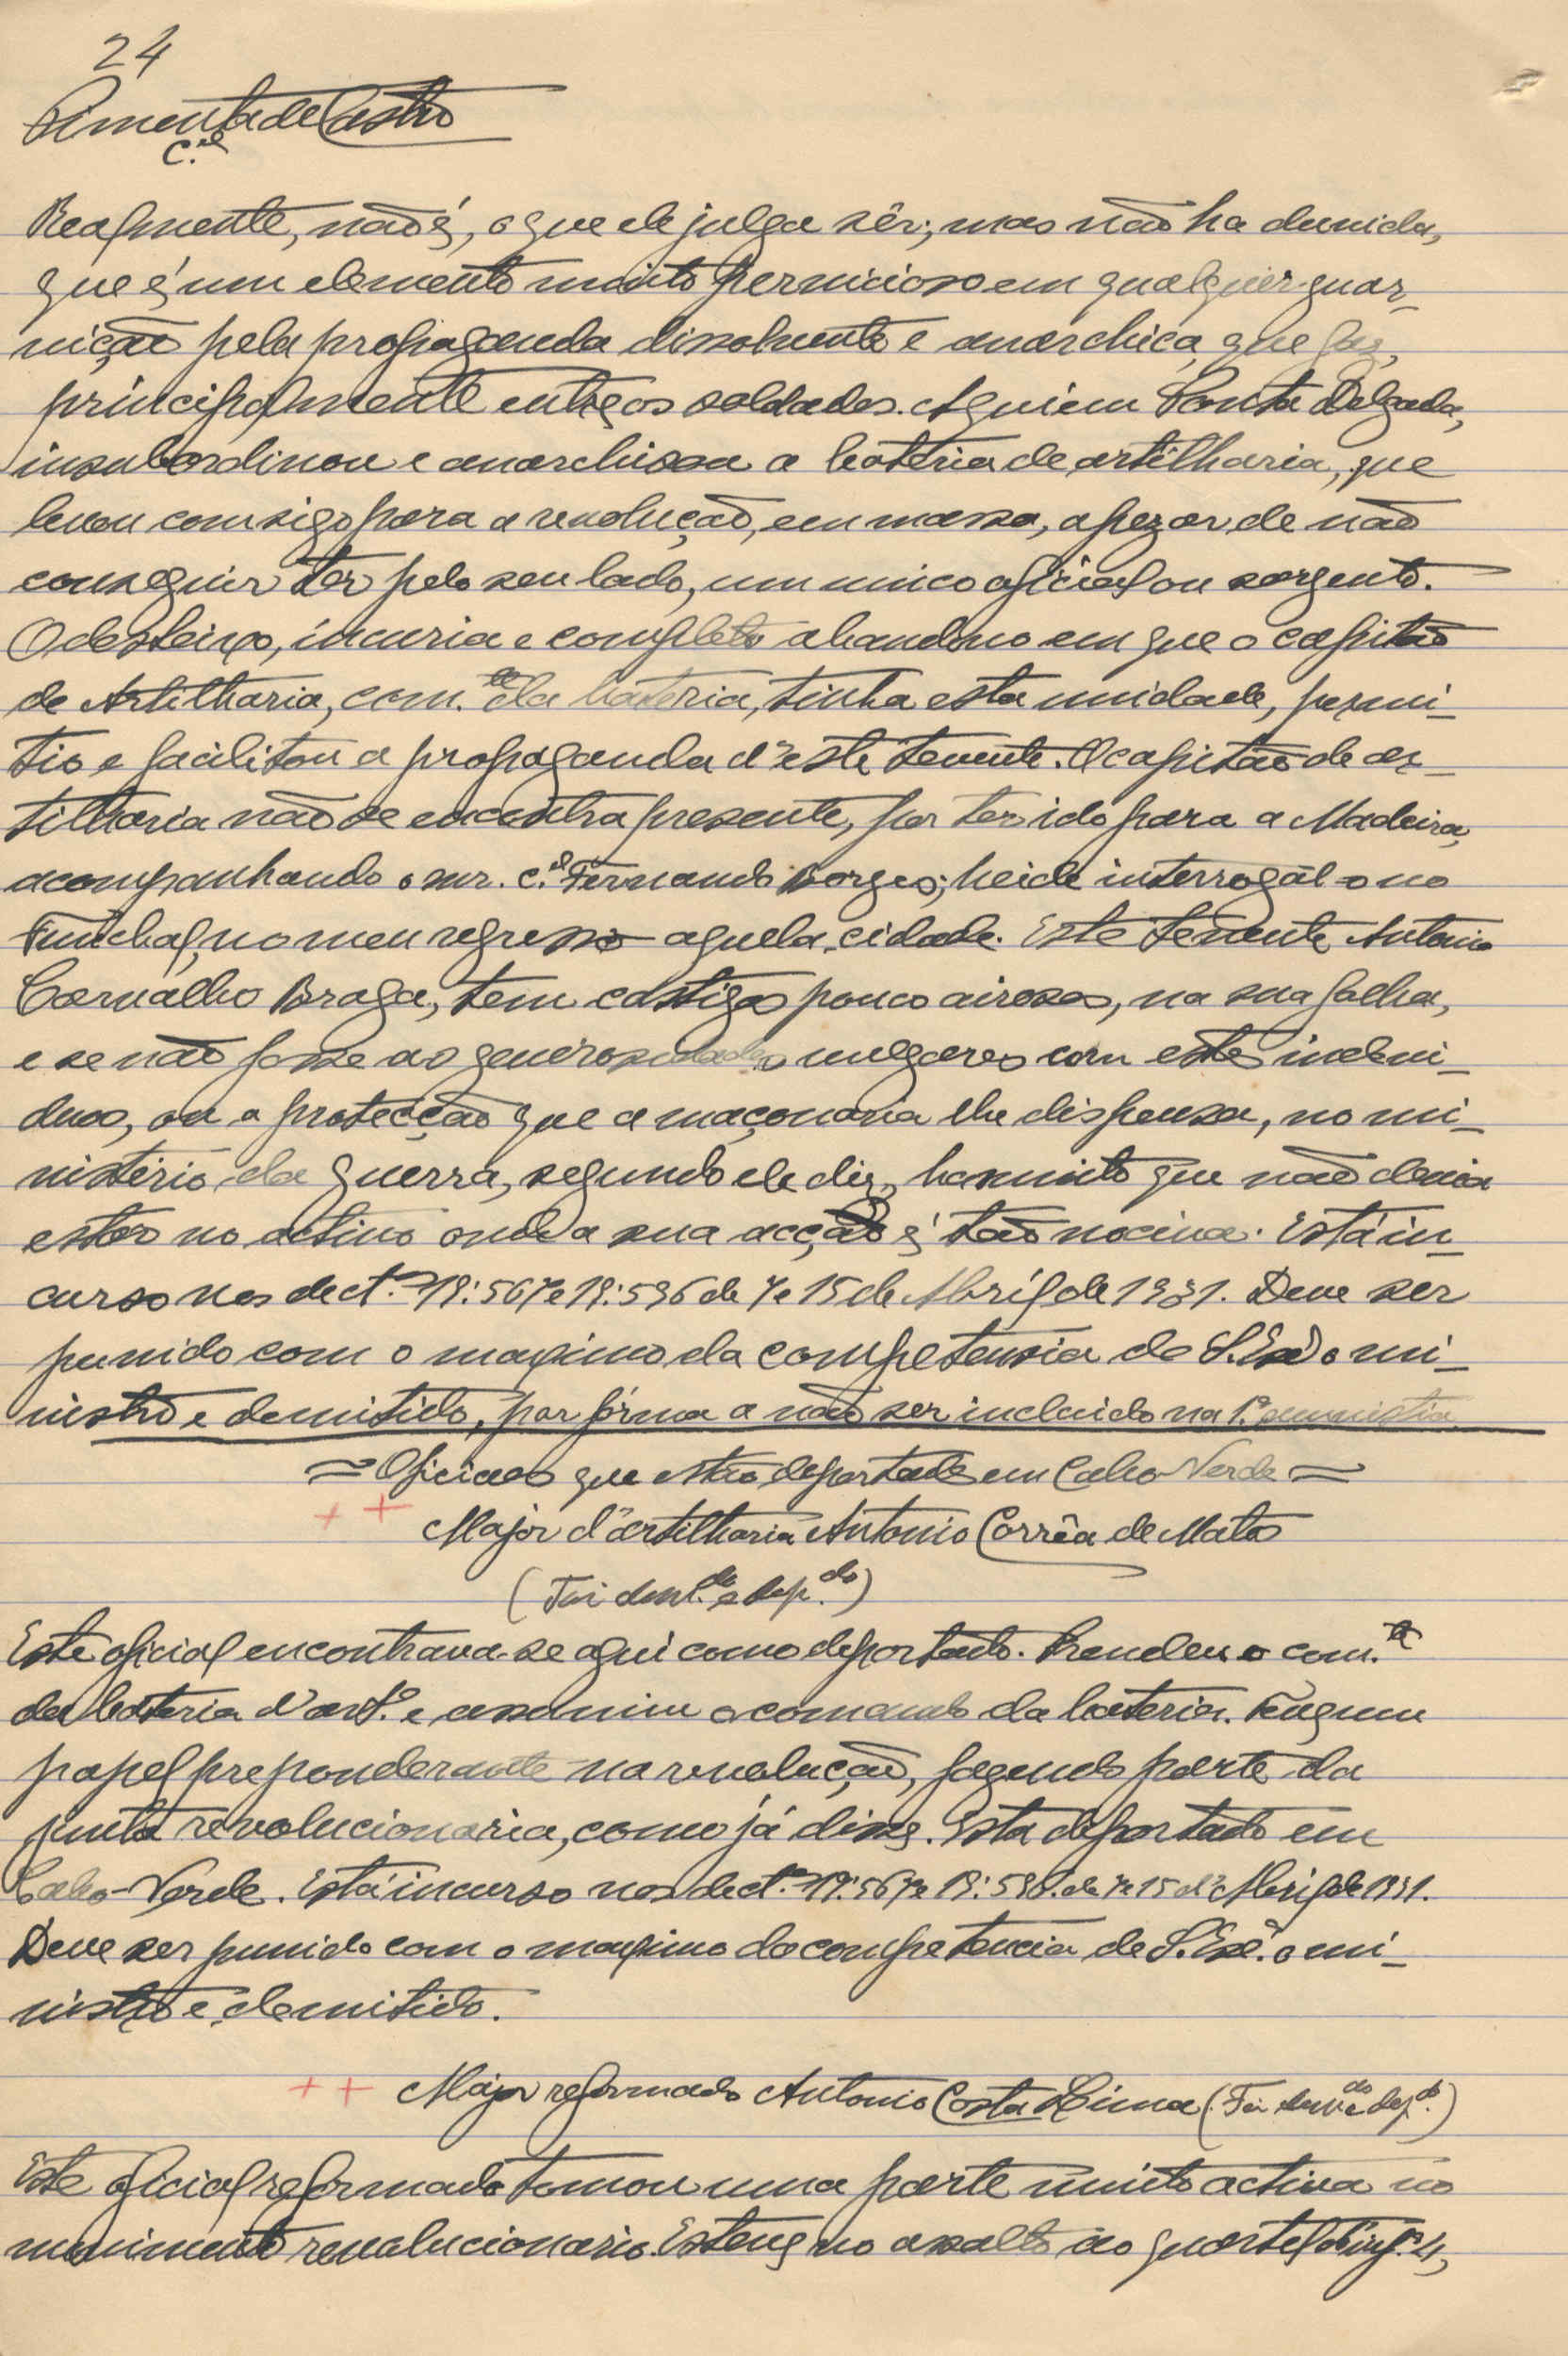 24
Pimenta de Castro
C.el
Realmente, não é, o que ele julga sêr; mas não ha duvida,
que é um elemento muito pernicioso em qualquer guar_
nição pela propaganda dissolvente e anarchica que faz,
principalmente entre os soldados. Aqui em Ponta Delgada,
insubordinou e anarchisou a bateria de artilharia, que
levou comsigo para a revolução, em massa, apezar de não
conseguir ter pelo seu lado, um unico oficial ou sargento.
O desleixo, incuria e completo abandono em que o capitão
de Artilharia, com.te da bateria, tinha esta unidade, permi_
tio e facilitou a propaganda d'este tenente. O capitão de ar_
tilharia não se encontra presente, por ter ido para a Madeira,
acompanhando o snr. C.el Fernando Borges; heide interrogál-o no
Funchal, no meu regresso aquela cidade. Este tenente Antonio
Carvalho Braga, tem castigos pouco airosos, na sua folha,
e se não fosse as generosidades vulgares com estes indevi_
duos, ou a protecção que a maçonaria lhe dispensa, no mi_
nisterio da guerra, segundo ele diz, ha muito que não devia
estar no activo onde a sua acção é tão nociva. Está in_
curso nos dect.os 19:567 e 19:596 de 7 e 15 de Abril de 1931. Deve ser
punido com o maximo da competensia de S. Exª o mi_
nistro e demitido, por fórma a não ser incluido na 1.ª amnistia.
= Oficiaes que estão deportados em Cabo Verde =
+ + Major d'artilharia Antonio Corrêa de Matos
(Foi dem.do e dep.do)
Este oficial encontrava-se aqui como deportado. Prendeu o com.te
da bateria d'art.ª e assumiu o comando da bateria. Teve um
papel preponderante na revolução, fazendo parte da
junta revolucionaria, como já disse. Esta deportado em
Cabo-Verde. Está incurso nos dect.os 19:567 e 19:596. de 7 e 15 d'Abril de 1931.
Deve ser punido com o maximo da competencia de S. Exª. o mi_
nistro e demitido.
+ + Major reformado Antonio Costa Lima (Foi dem.do e dep.do)
Este oficial reformado tomou uma parte muito activa no
movimento revolucionario. Esteve no assalto ao quartel d'inf.ª 4,